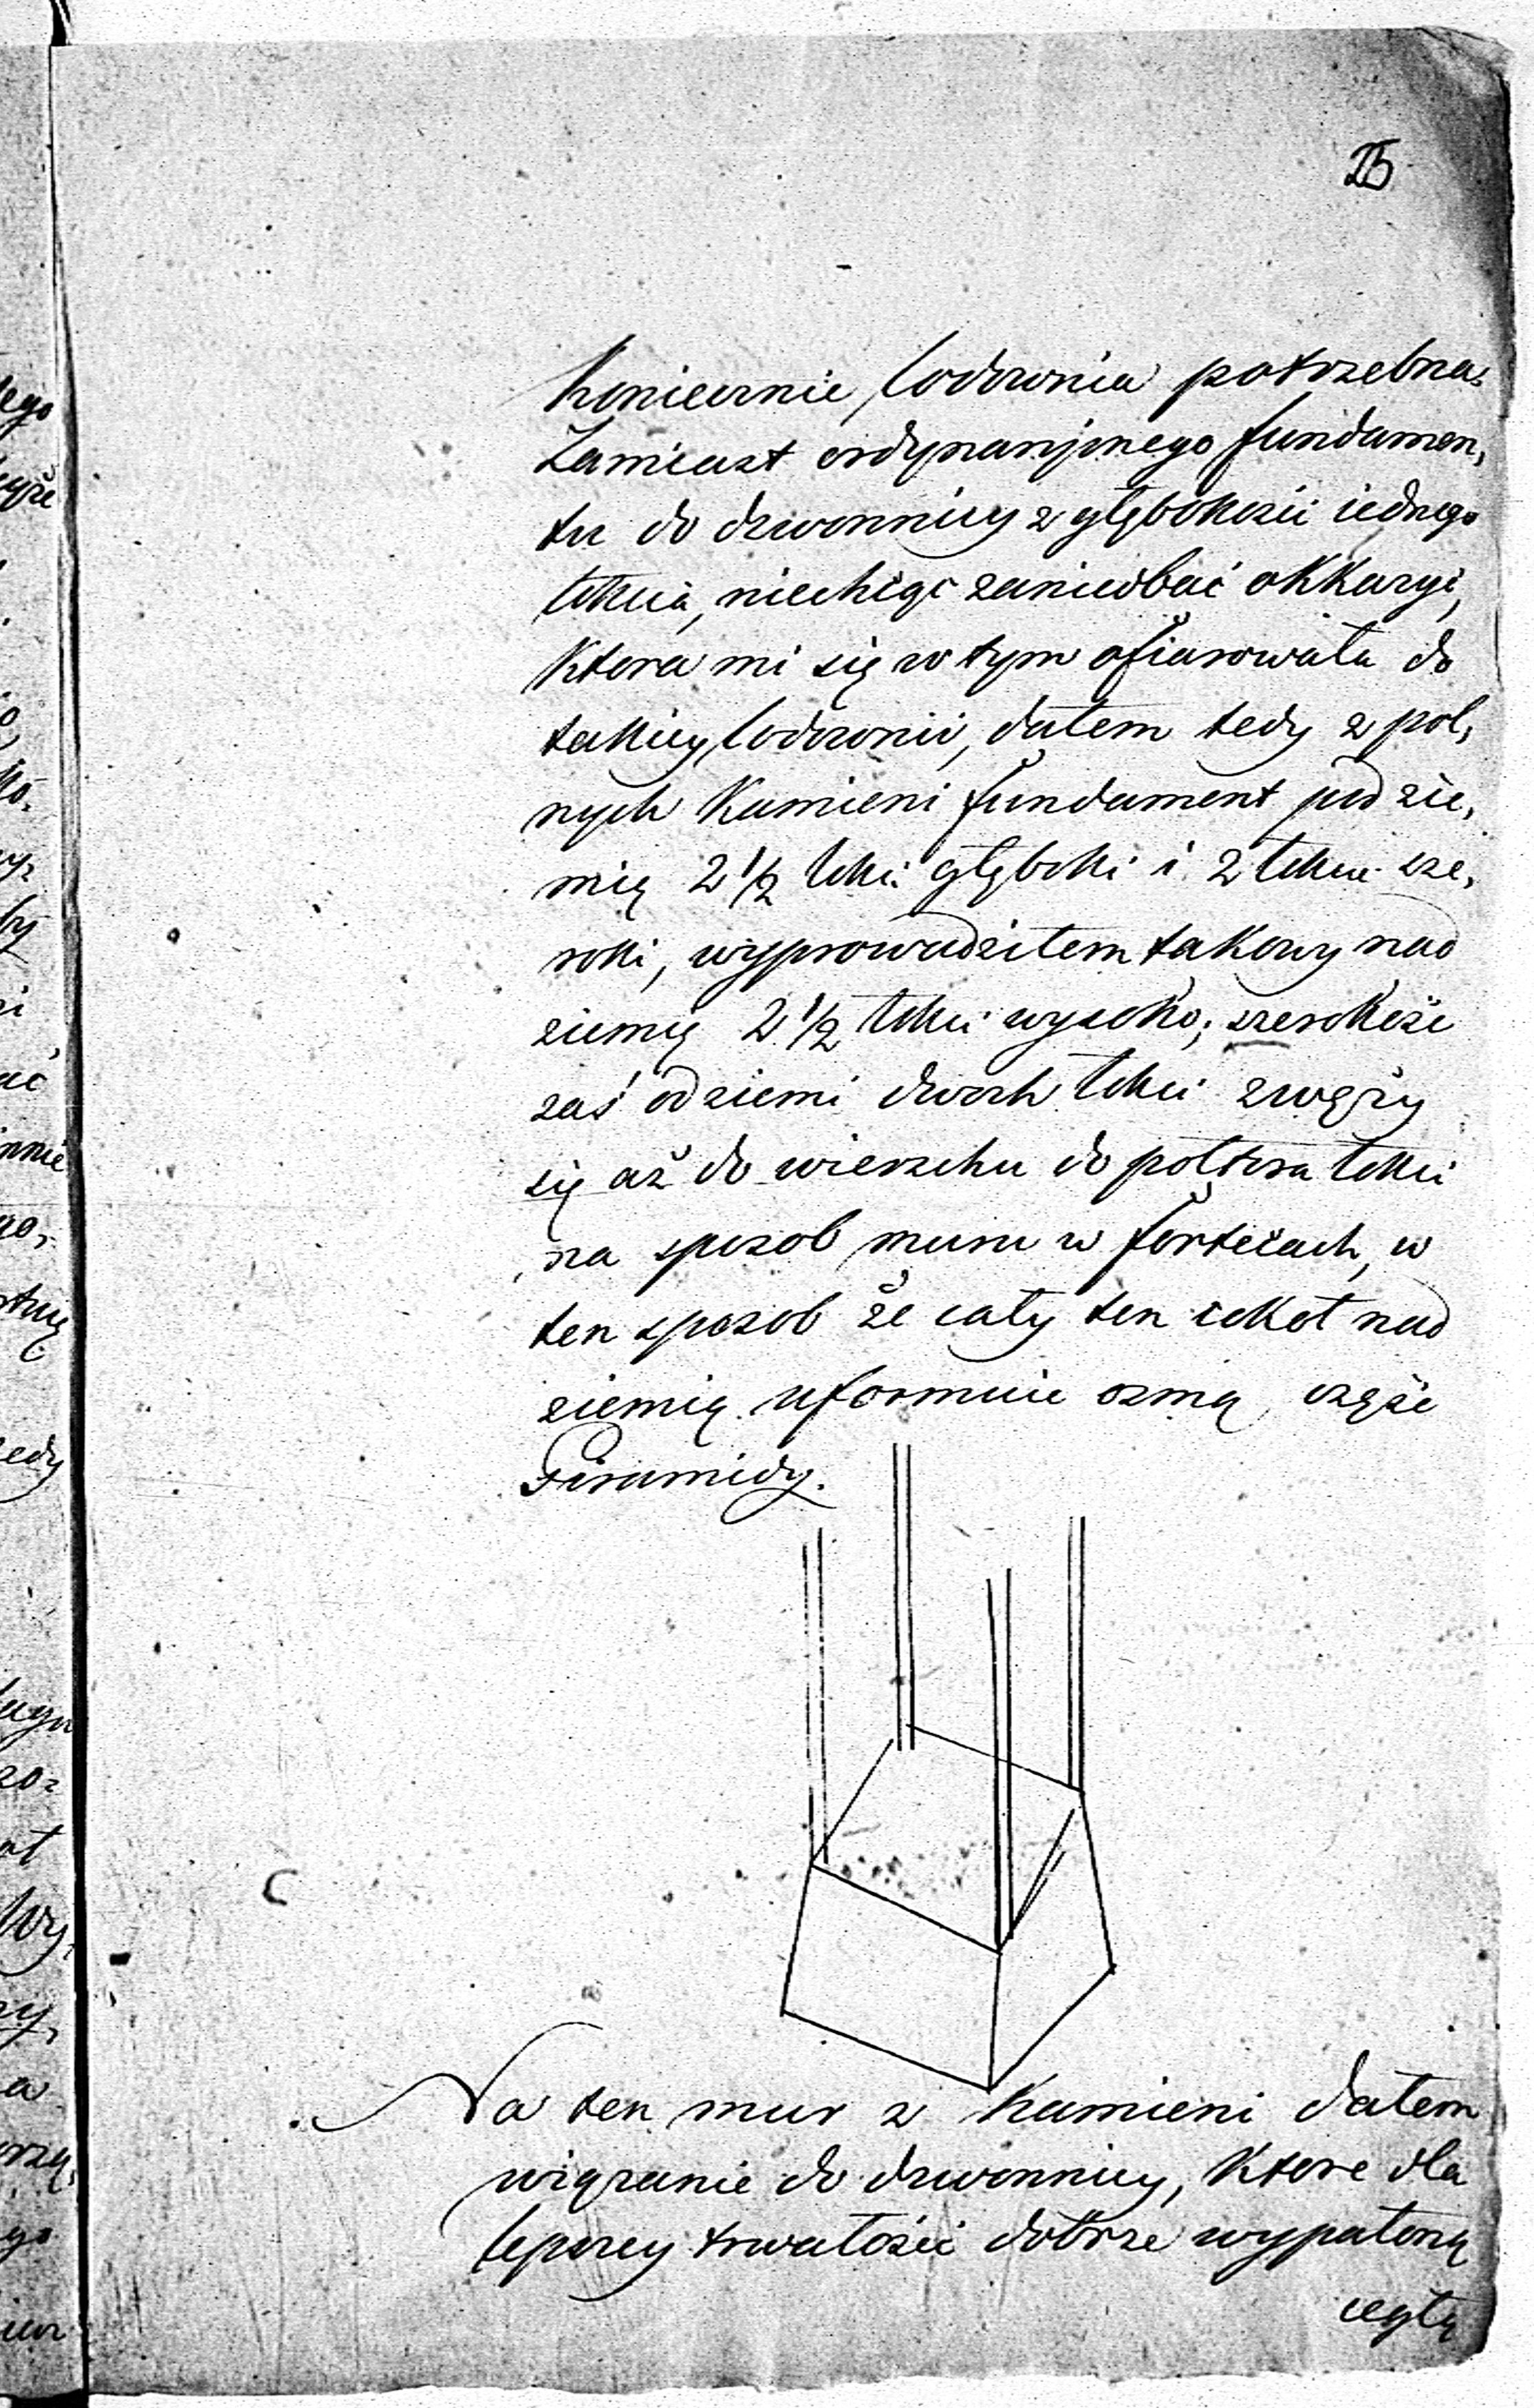 25
koniecznie lodownia potrzebna.
Zamiast ordynaryjnego fundamen,
tu do dzwonnicy z głębokości iednego
łokcia, niechcąc zaniedbać okkazyi,
ktora mi się w tym ofiarowała do
takiey lodowni, dałem tedy z pol,
nych kamieni fundament pod zie,
mię 2 1/2 łokci głęboki i 2 łokcie sze,
roki, wyprowadziłem takowy nad
ziemię 2 1/2 łokci wysoko; szerokość
zaś od ziemi dwoch łokci zwęży
się aż do wierzchu do połtora łokci
na sposob muru w fortecach, w
ten sposob że cały ten cokoł nad
ziemią uformuie ozmą część
Piramidy.
Na ten mur z kamieni dałem
wiązanie do dzwonnicy, ktore dla
lepszey trwałości dobrze wypaloną
cegłą